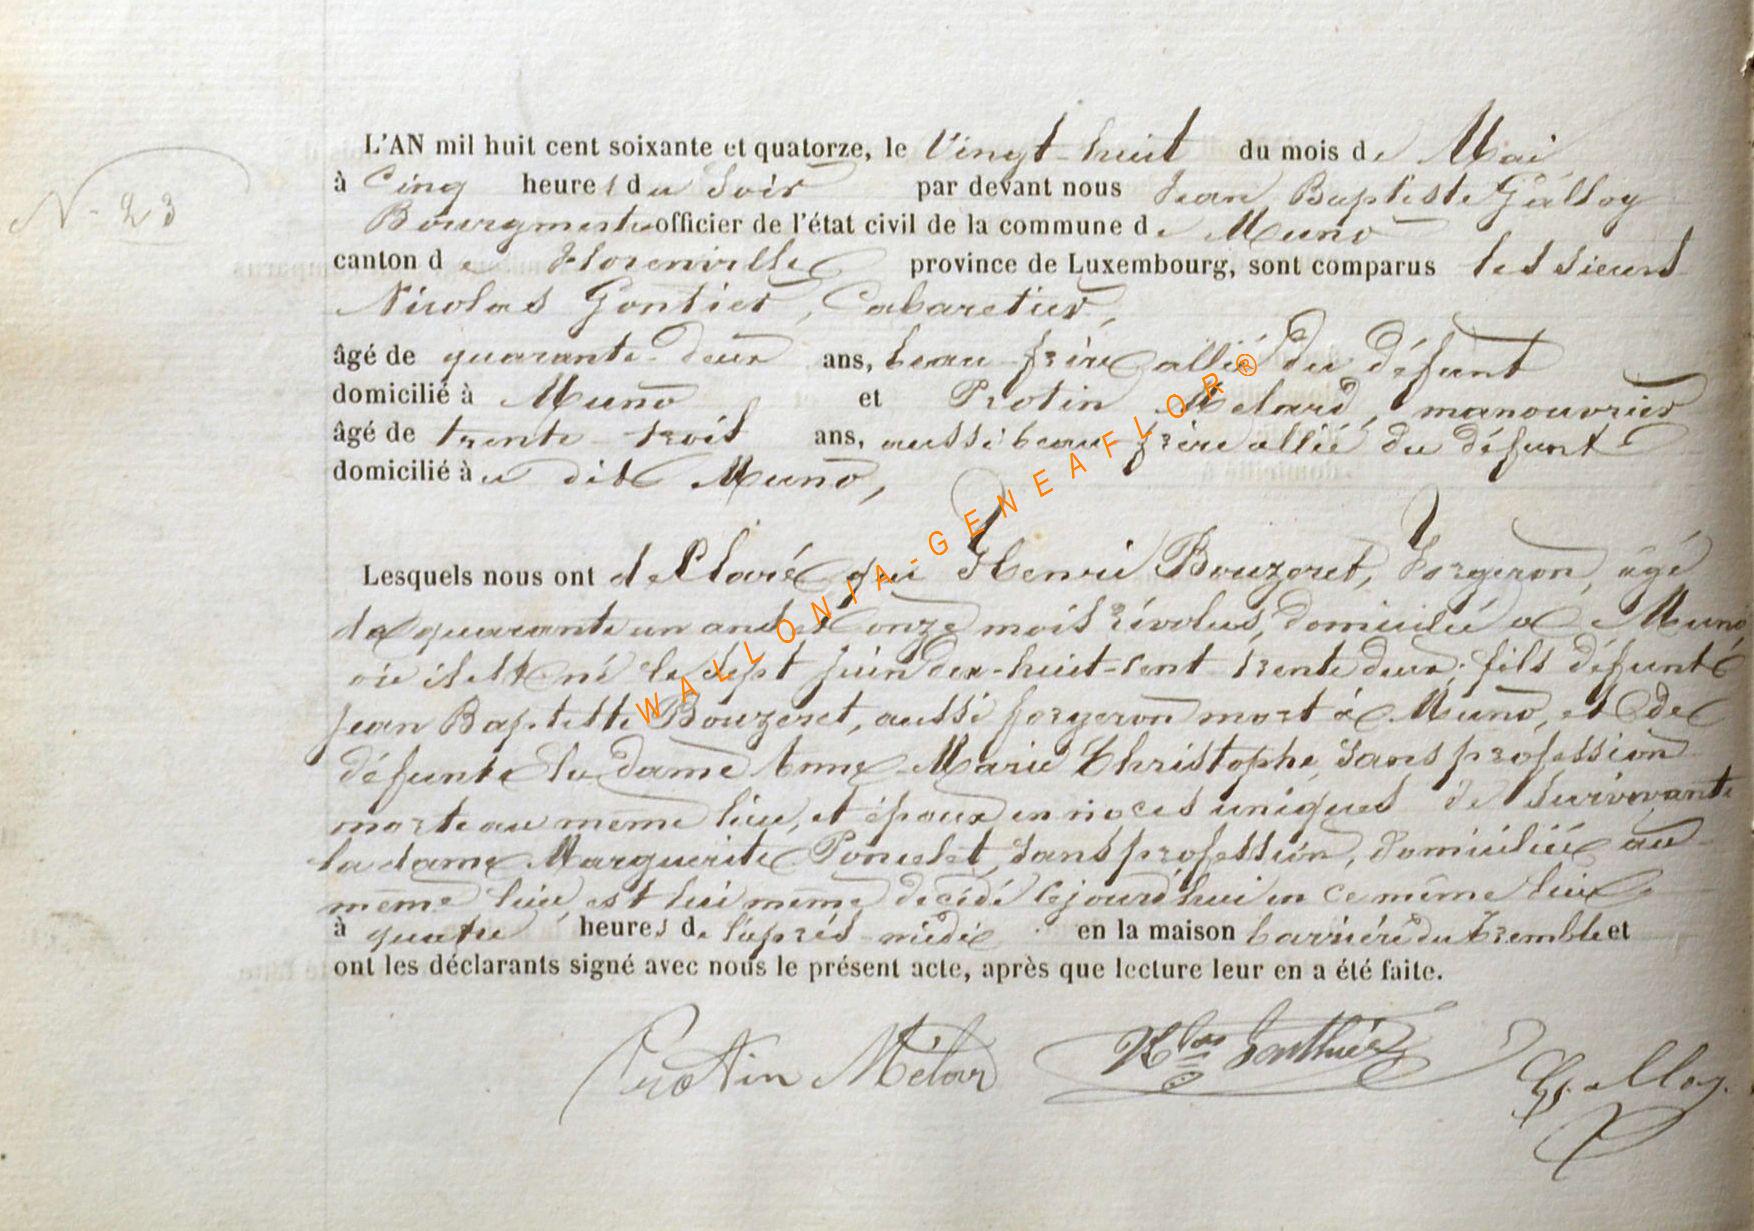 N° 23
L'AN mil huit cent soixante et quatorze, le Vingt-huit du mois de Mai
à Cinq heures du Soir par devant nous Jean Baptiste Galloy
Bourgmestre officier de l'état civil de la commune de Muno
canton de Florenville province de Luxembourg, sont comparus les sieurs
Nicolas Gontier, Cabaretier,
âgé de quarante-deux ans, beau-frère allié du défunt
domicilié à Muno et Protin Melard, manouvrier
âgé de trente-trois ans, aussi beau-frère allié du défunt
domicilié à u dit Muno,
Lesquels nous ont déclaré que Henri Bouzeret, Forgeron, âgé
de quarante un ans et onze mois révolus, domicilié à Muno,
où il est né le sept juin dix-huit-cent trente deux, fils défunt
Jean Baptiste Bouzeret, aussi forgeron mort à Muno, et de
défunte la dame Anne-Marie Christophe, sans profession
morte au même lieu, et époux en noces uniques de survivante
la dame Marguerite Poncelet, sans profession, domiciliée au
même lieu, est lui même décédé cejourd'hui en ce même lieu
à quatre heures de l'après-midi en la maison barrière du Tremble et
ont les déclarants signé avec nous le présent acte, après que lecture leur en a été faite.
Protin Mélard Nlas Gonthier Galloy.
WALLONIA-GENEAFLOR®